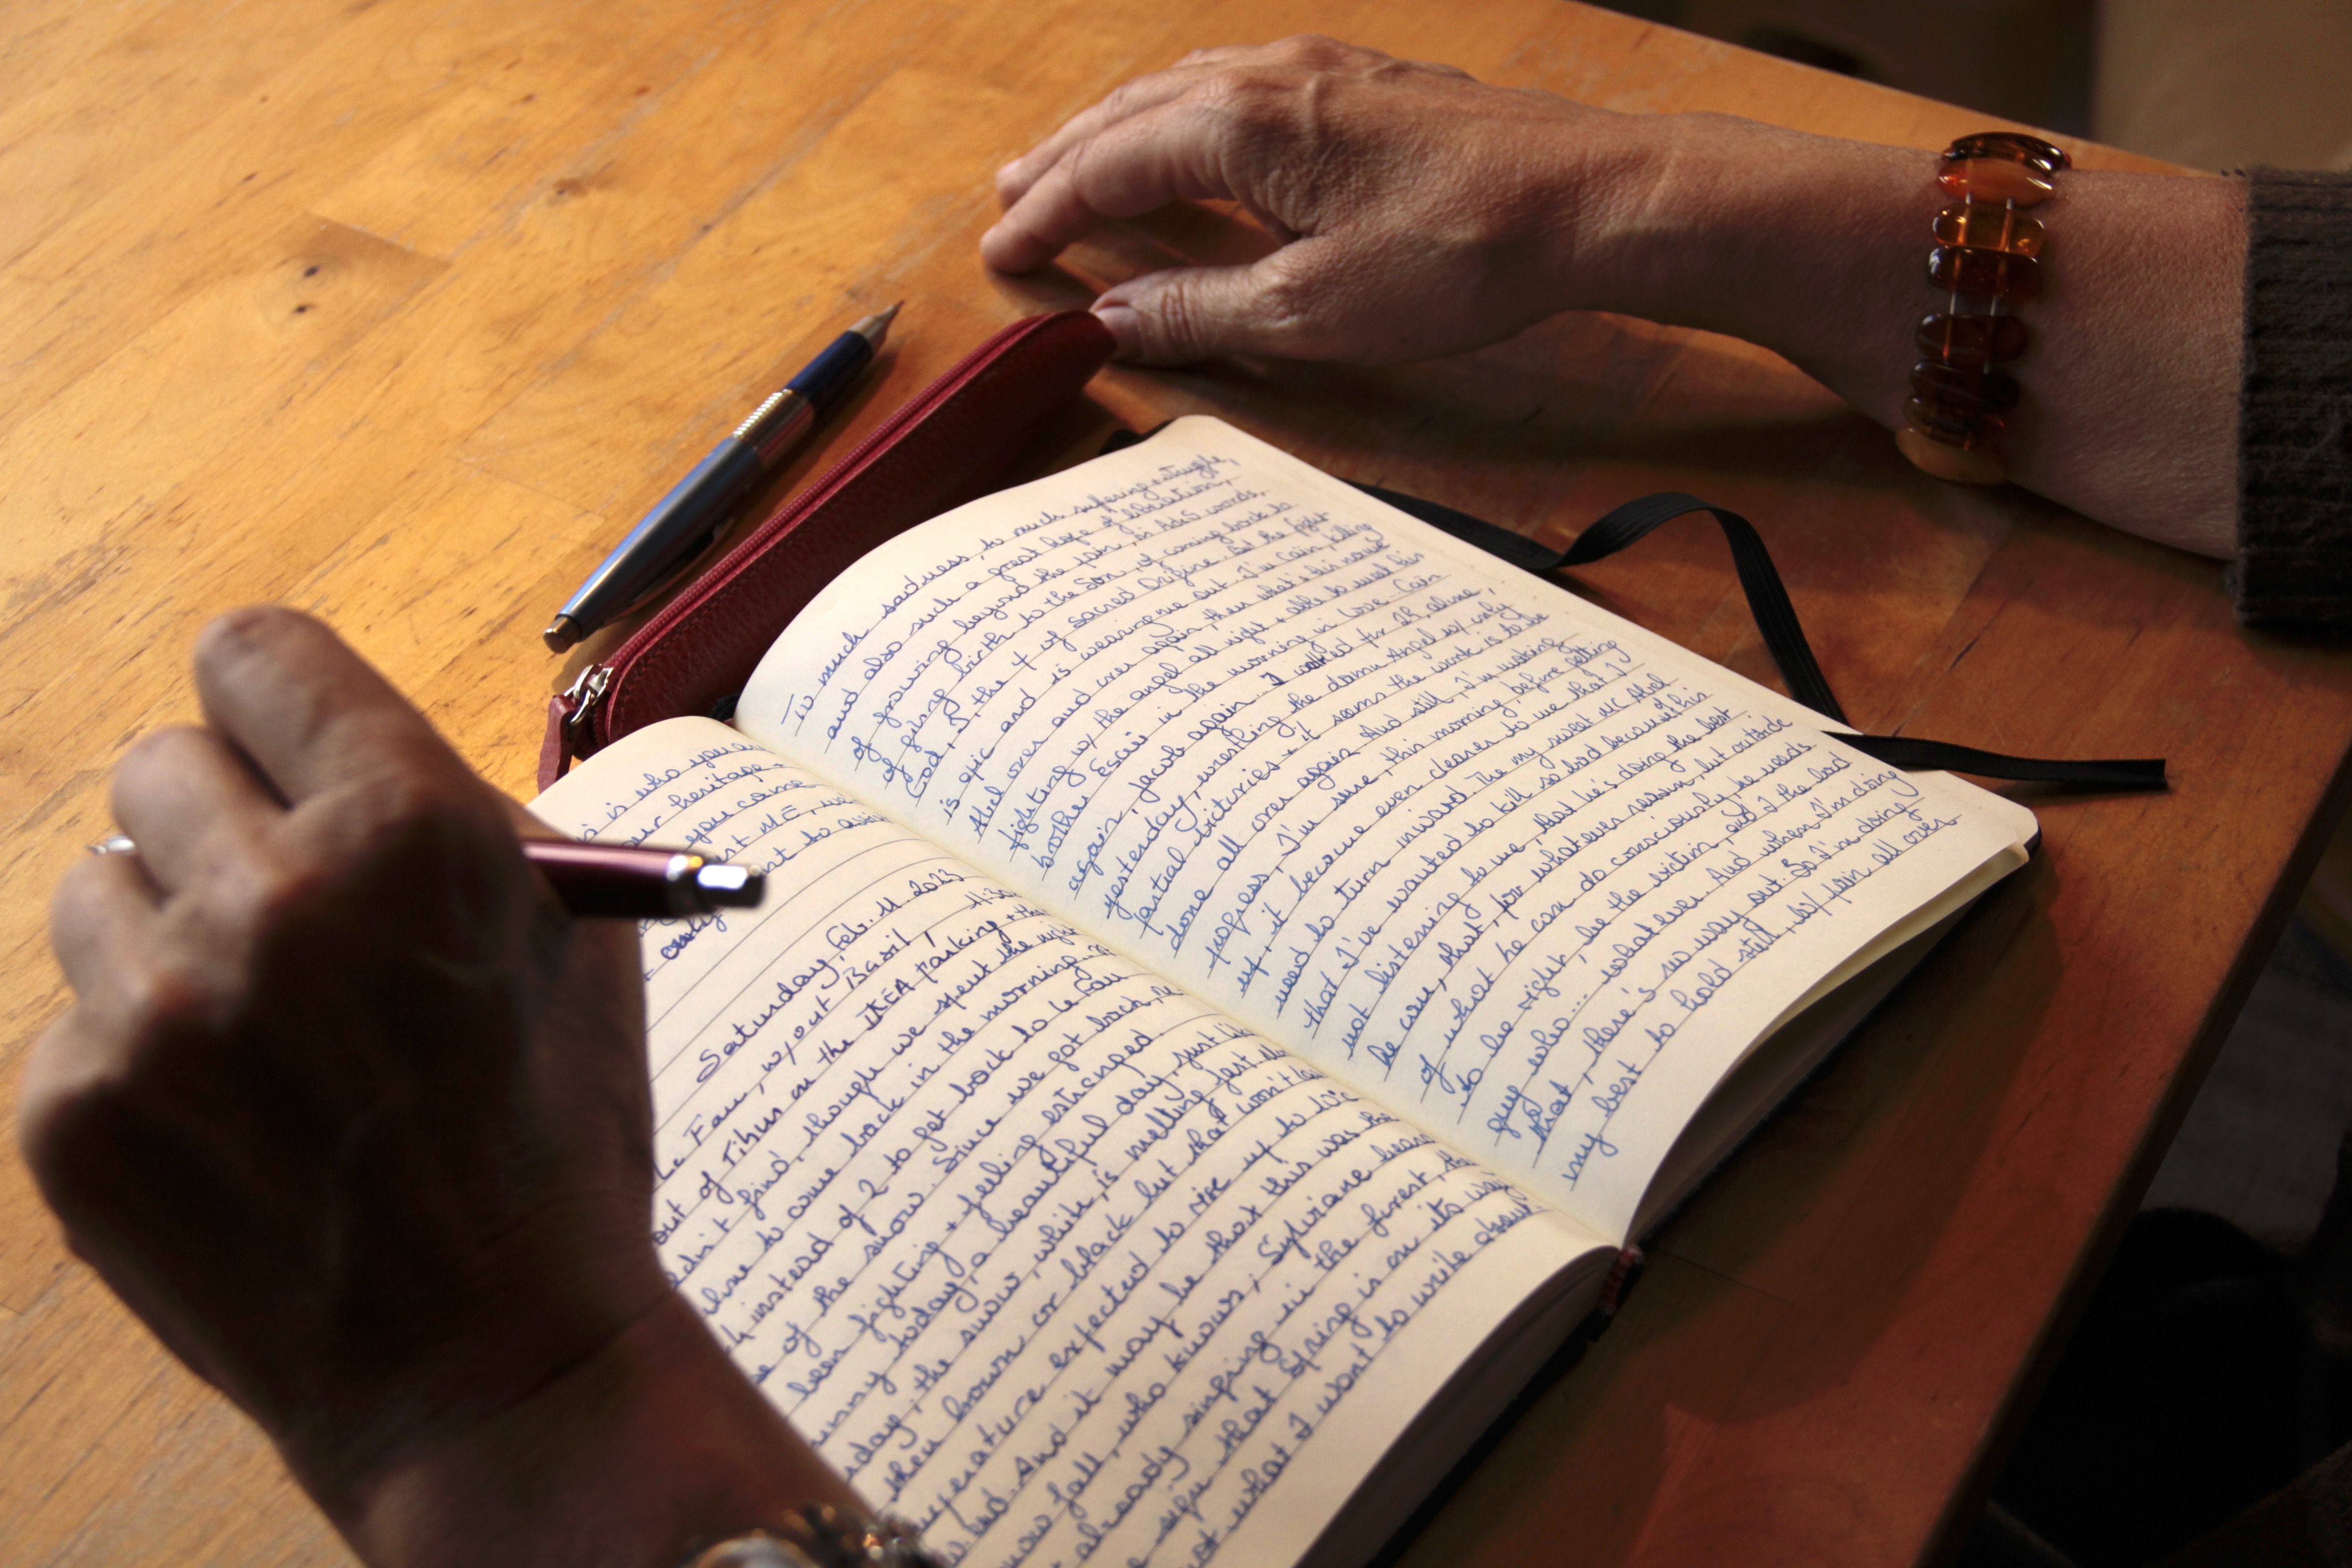 is who you are
our heritage.
you come
st ME, we
+ only
Saturday, Feb. 11 2023
Le Fau, w/out Basil, 11:30
out of Tihus in the IKEA parking + the
didn't find, though we spent the night
to come back in the morning.
instead of 2 to get back to Le Fau
of the snow. Since we got back,
been fighting + feeling estranged.
sunny today, a beautiful day, just like
day, the snow, which is melling fast
then brown or black but that won't last
temperature expected to rise up to 10°C
And it may be that this was the
snow fall, who knows; Sylviane hears
already singing in the forest,
sign that Spring is on its way
not what I want to write about
To much sadness, to much suffering + struggle,
and also such a great hope of liberation,
of growing beyond the pain, in Adi's words,
of giving birth to the Son, of coming back to
God, I, the I of sacred Origine. But the fight
is epic and is wearing me out. I'm Cain, killing
Abel over and over again, then what's his name
fighting w/ the angel all night + able to meet his
brother Esau in the morning in Love. Cain
again, Jacob again. I cried for 2h, alone,
yesterday, wrestling the damn Angel w/ only
partial victories + it seems the work is to be
done all over again. And still, I'm making
progress, I'm sure, this morning, before getting
up, it became even clearer to me that I
need to turn inward the my sweet Abel
that I've wanted to kill so bad because of his
not listening to me, that he's doing the best
he can, that, for whatever reason, but outside
of what he can do consciously he needs
to be right, be the victim, and I the bad
guy who... whatever. And when I'm doing
that, there's no way out. So I'm doing
my best to hold still, w/ pain all over